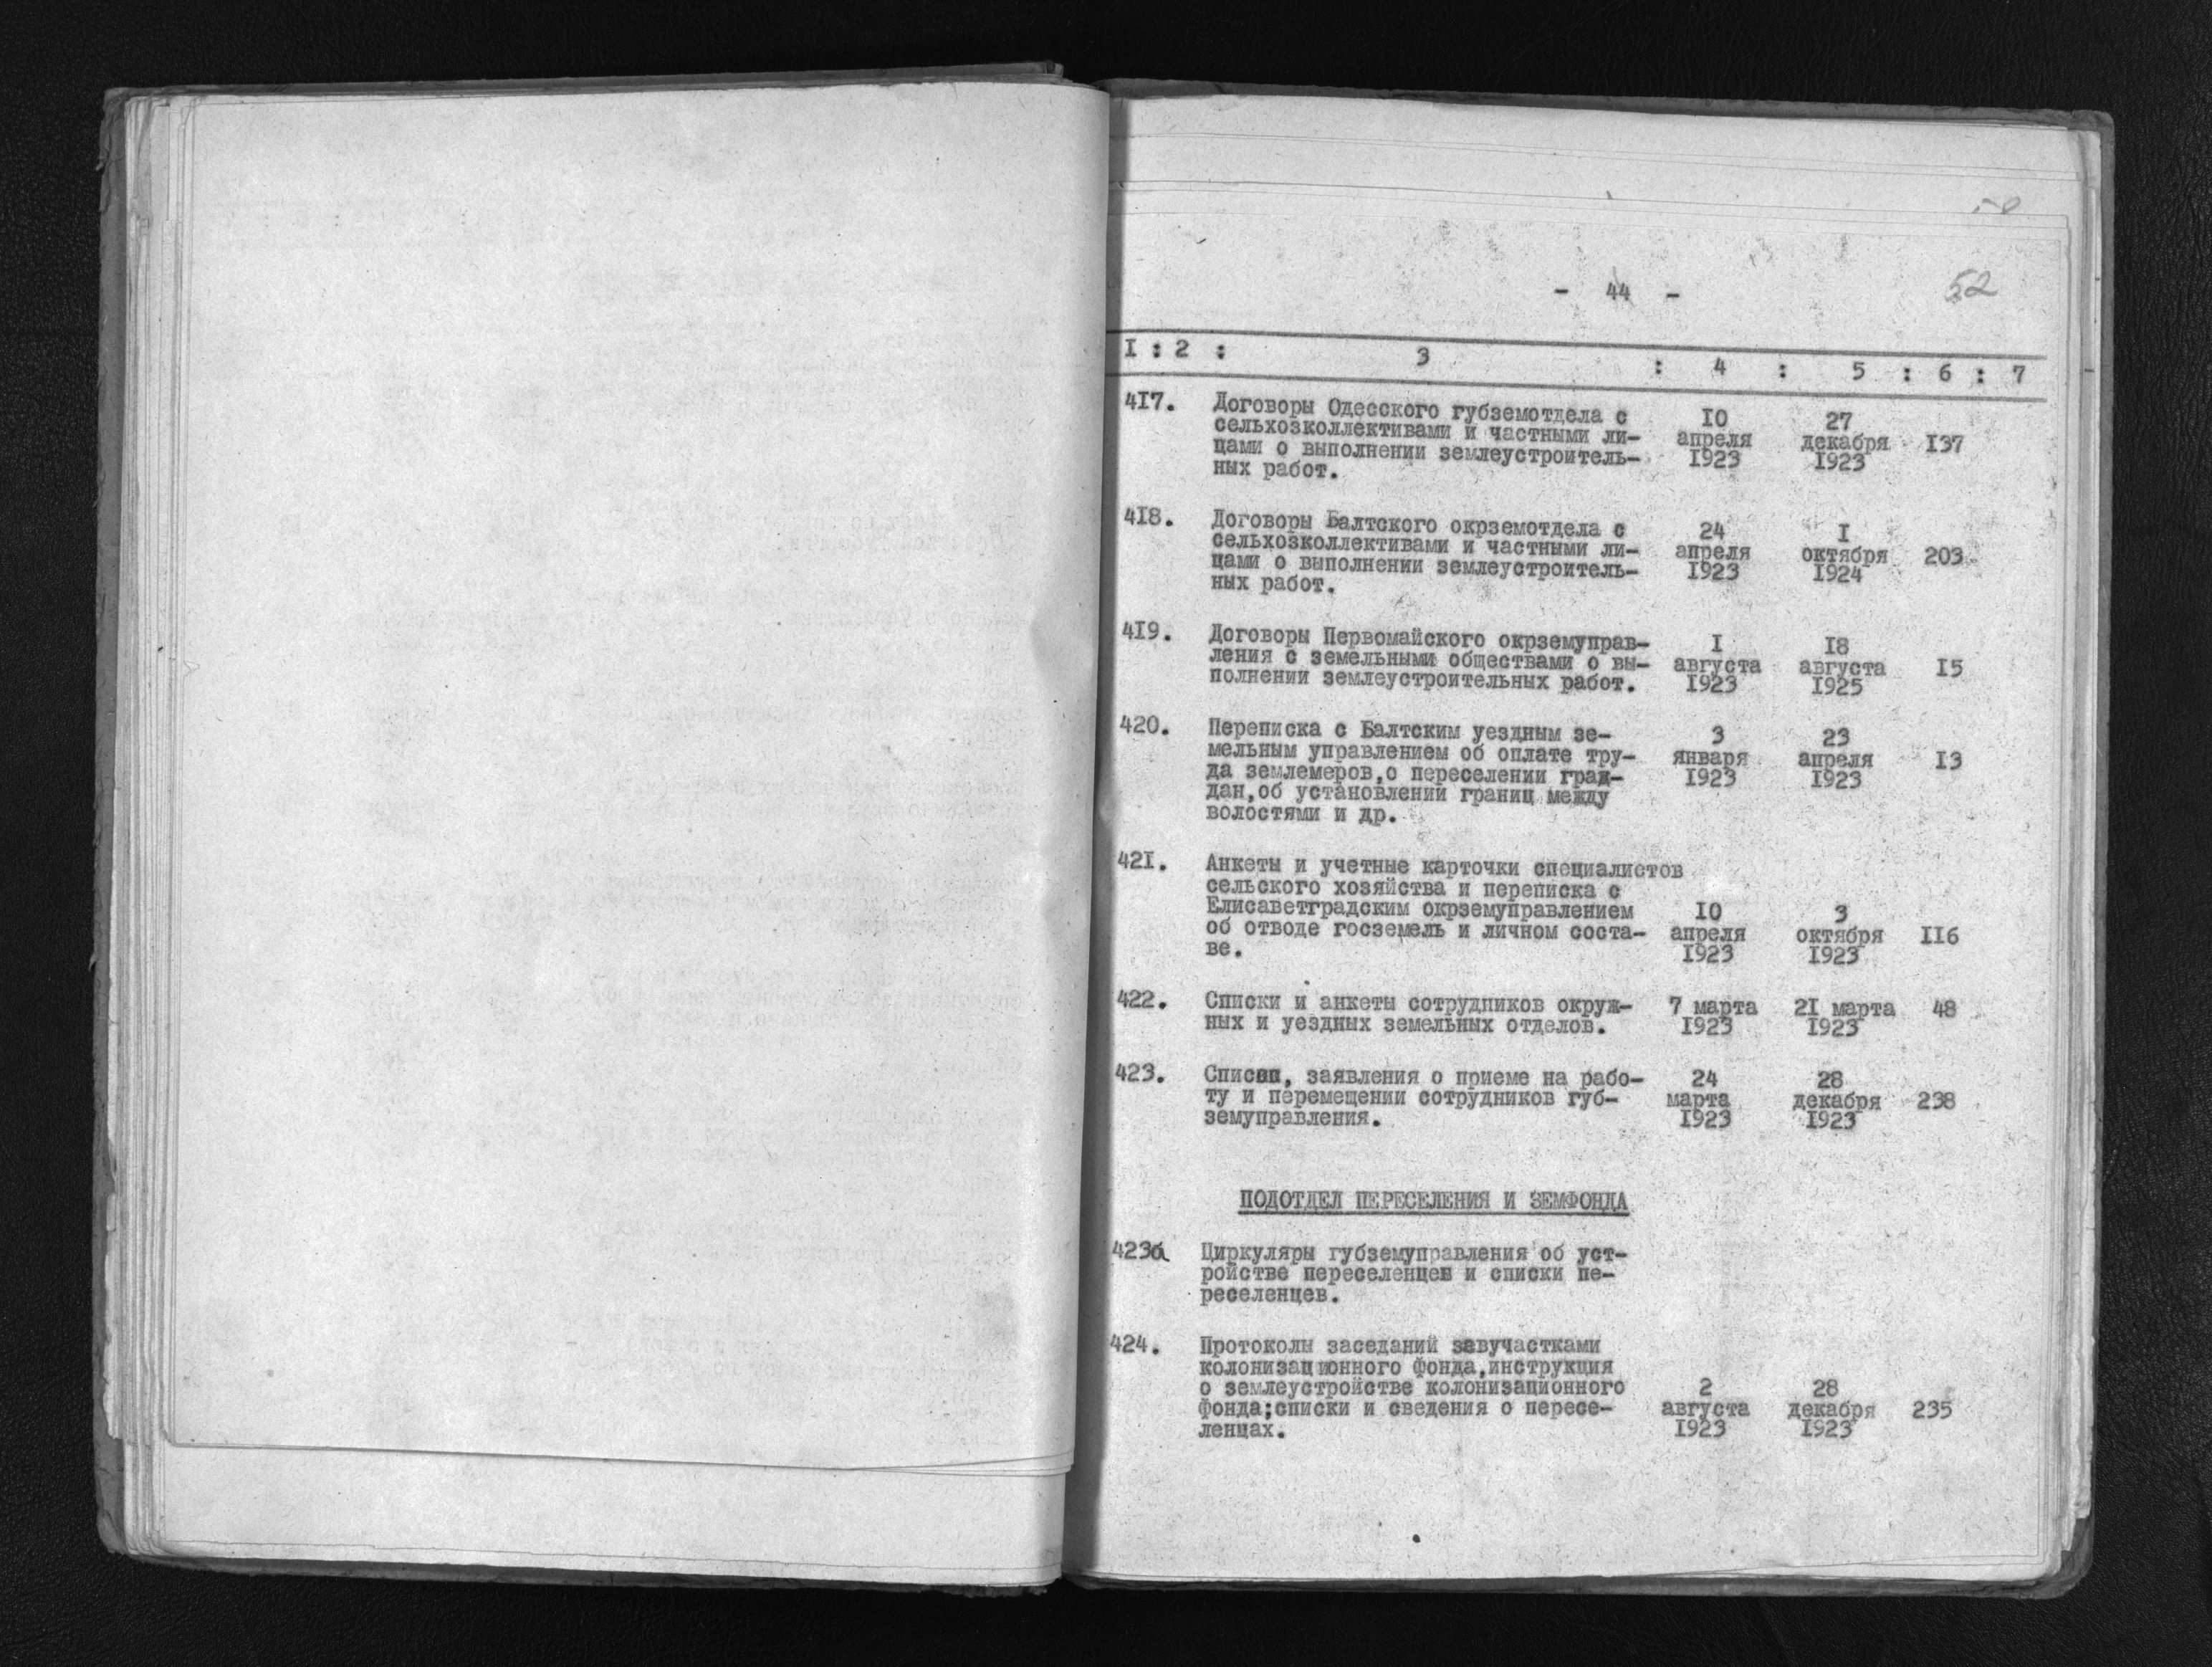 - 44 -
52
I : 2 : 3 : 4 : 5 : 6 : 7
417. Договоры Одесского губземотдела с
сельхозколлективами и частными ли-
цами о выполнении землеустроитель-
ных работ.
10 апреля 1923
27 декабря 1923
137
418. Договоры Балтского окрземотдела с
сельхозколлективами и частными ли-
цами о выполнении землеустроитель-
ных работ.
24 апреля 1923
I октября 1924
203
419. Договоры Первомайского окрземуправ-
ления с земельными обществами о вы-
полнении землеустроительных работ.
I августа 1923
18 августа 1925
15
420. Переписка с Балтским уездным зе-
мельным управлением об оплате тру-
да землемеров,о переселении граж-
дан,об установлении границ между
волостями и др.
3 января 1923
23 апреля 1923
13
421. Анкеты и учетные карточки специалистов
сельского хозяйства и переписка с
Елисаветградским окрземуправлением
об отводе госземель и личном соста-
ве.
10 апреля 1923
3 октября 1923
116
422. Списки и анкеты сотрудников окруж-
ных и уездных земельных отделов.
7 марта 1923
21 марта 1923
48
423. Списки, заявления о приеме на рабо-
ту и перемещении сотрудников губ-
земуправления.
24 марта 1923
28 декабря 1923
238
ПОДОТДЕЛ ПЕРЕСЕЛЕНИЯ И ЗЕМФОНДА
423а Циркуляры губземуправления об уст-
ройстве переселенцев и списки пе-
реселенцев.
424. Протоколы заседаний завучастками
колонизационного фонда,инструкция
о землеустройстве колонизационного
фонда;списки и сведения о пересе-
ленцах.
2 августа 1923
28 декабря 1923
235